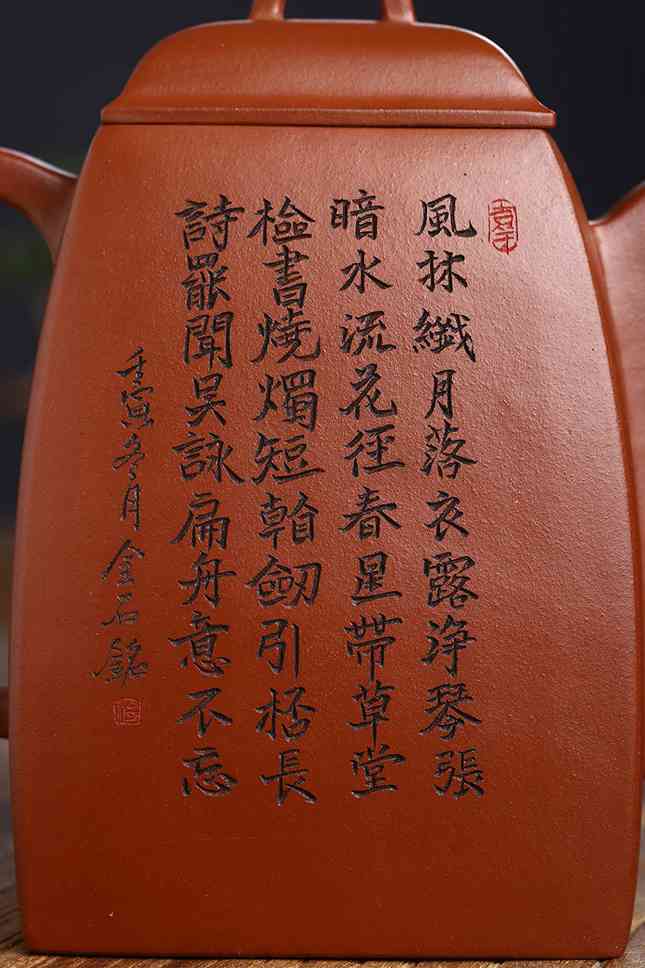 風林纖月落衣露淨琴張
暗水流花徑春星帶草堂
檢書燒燭短劒引桮長
詩罷聞吳詠扁舟意不忘
壬寅冬月金石銘